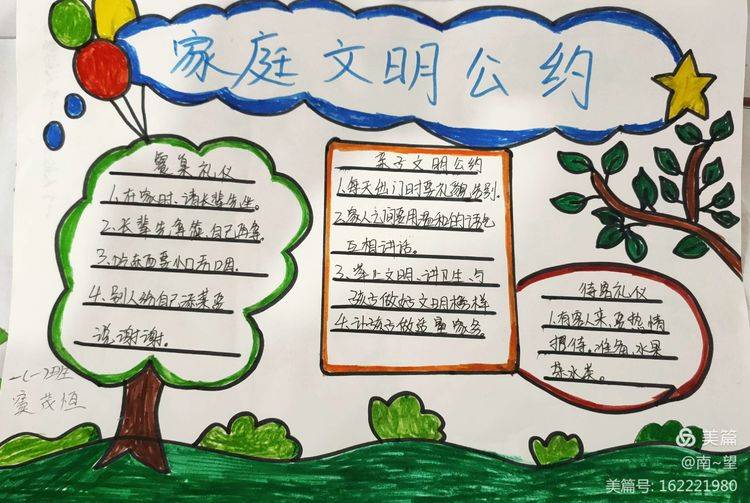 家庭文明公约
餐桌礼仪
1、在家时、请长辈先坐。
2、长辈先拿筷自己再拿。
3、吃东西要小口
4、别人给自己添菜要
说谢谢。
亲子文明公约
1、每天出门时要礼貌告别。
2、家人之间要用温和的语气
互相讲话。
3、举止文明、讲卫生、与
孩子做好文明榜样
4、让孩子做适量家务
待客礼仪
1、有客人来,要热情
招待,准备,水果
茶水类。
一(一)班
茂恒
美篇
@南~望
美篇号: 162221980